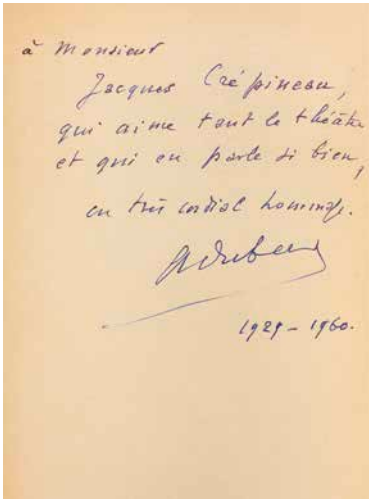 à Monsieur
Jacques Crépineau,
qui aime tant le théâtre
et qui en parle si bien,
en très cordial hommage.
1929 - 1960.